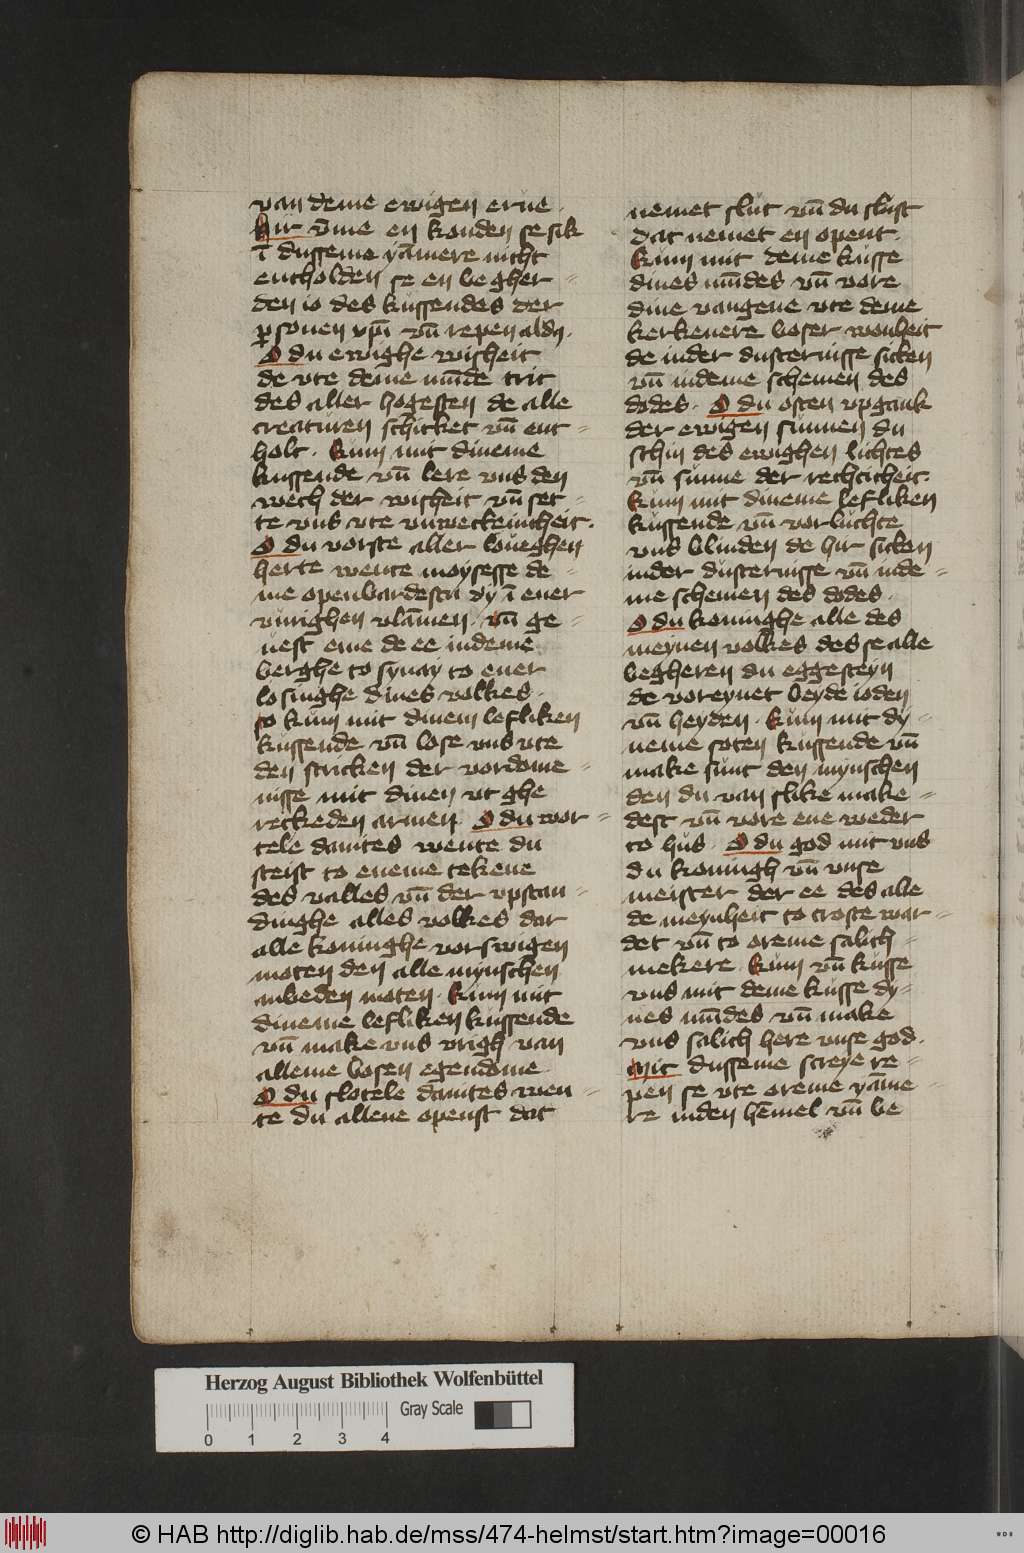 van deme ewigen erue
hir v̄me en konden se sik
ī dusseme yāmere nicht
entholden se en begher=
den io des kussendes der
ꝑsonen xpī vn̄ repen aldꝰ.
O du ewighe wisheit
de vte deme mūde trit
des aller hogesten de alle
creaturen schicket vn̄ ent=
holt. kum mit dineme
kussende vn̄ lere vns den
wech der wisheit vn̄ set=
te vns vte vnweckeincheit.
O du vorste aller loueghen
herte wente moysesse de=
me openbardestu dy ī ener
vurighen vlāmen. vn̄ ge=
uest eme de ee indeme
berghe to synay to ener
losinghe dines volkes.
so kum mit dinem lefliken
kussende vn̄ lose vns vte
den stricken der vordome=
nisse mit dinen vt ghe
reckeden armen. O du wor=
tele dauites wente du
steist to eneme tekene
des valles vn̄ der vpstan=
dinghe alles volkes dar
alle koninghe vorswigen
moten den alle mynschen
anbeden moten. kum mit
dineme lefliken kussende
vn̄ make vns vrigh van
alleme bosen egendome.
O du slotele dauites wen=
te du allene openst dat
nemet slut vn̄ du slust
dat nemet en opent.
kum mit deme kusse
dines mūdes vn̄ vore
dine vangene vte deme
kerkenere boser wonheit
de inder dusternisse sitten
vn̄ indeme schemen des
dodes. O du osten vpgank
der ewigen sunnen du
schin des ewighen lichtes
vn̄ sunne der rechticheit.
kum mit dineme lefliken
kussende vn̄ vorluchte
vns blinden de hir sitten
inder dusternisse vn̄ inde=
me schemen des dodes.
O du koninghe alle des
meynen volkes des se alle
begheren du eggesteyn
de voreynet beyde ioden
vn̄ heyden. kum mit dy=
neme soten kussende vn̄
make sunt den mynschen
den du van slike make=
dest vn̄ vore ene weder
to hus. O du god mit vns
du koningh vn̄ vnse
meister der ee des alle
de meynheit to troste war=
det vn̄ to oreme salich=
mekere. kum vn̄ kusse
vns mit deme kusse dy=
nes mūdes vn̄ make
vns salich here vnse god.
Mit dusseme screye re=
pen se vte oreme yāme=
re inden hēmel vn̄ be
Herzog August Bibliothek Wolfenbüttel
Gray Scale
0 1 2 3 4
© HAB http://diglib.hab.de/mss/474-helmst/start.htm?image=00016